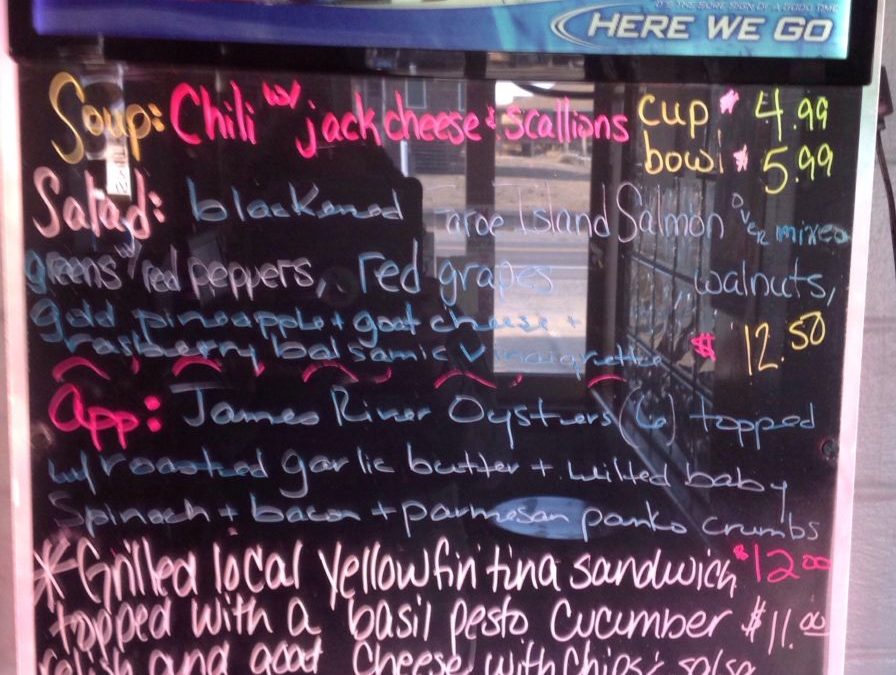 IT'S THE SURE SIGN OF A GOOD TIME
HERE WE GO
Soup: Chili w/ jack cheese & scallions cup $4.99
bowl $5.99
Salad: blackened Faroe Island Salmon over mixed
greens w/ red peppers, red grapes, walnuts,
gold pineapple + goat cheese +
rasberry balsamic vinaigrette $12.50
App: James River Oysters (6) topped
w/ roasted garlic butter + wilted baby
Spinach + bacon + parmesan panko crumbs
*Grilled local yellowfin tuna sandwich $12.00
topped with a basil pesto Cucumber $11.00
relish and goat cheese with Chips & salsa